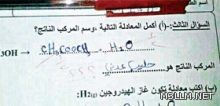 السؤال الثالث:-(أ) أكمل المعادلة التالية ،وسم المركب الناتج؟
3OH → CH₃COOCH + H₂O
المركب الناتج هو
(ب) اكتب معادلة تكون غاز الهيدروجين H₂(g):
MBLLM.NET